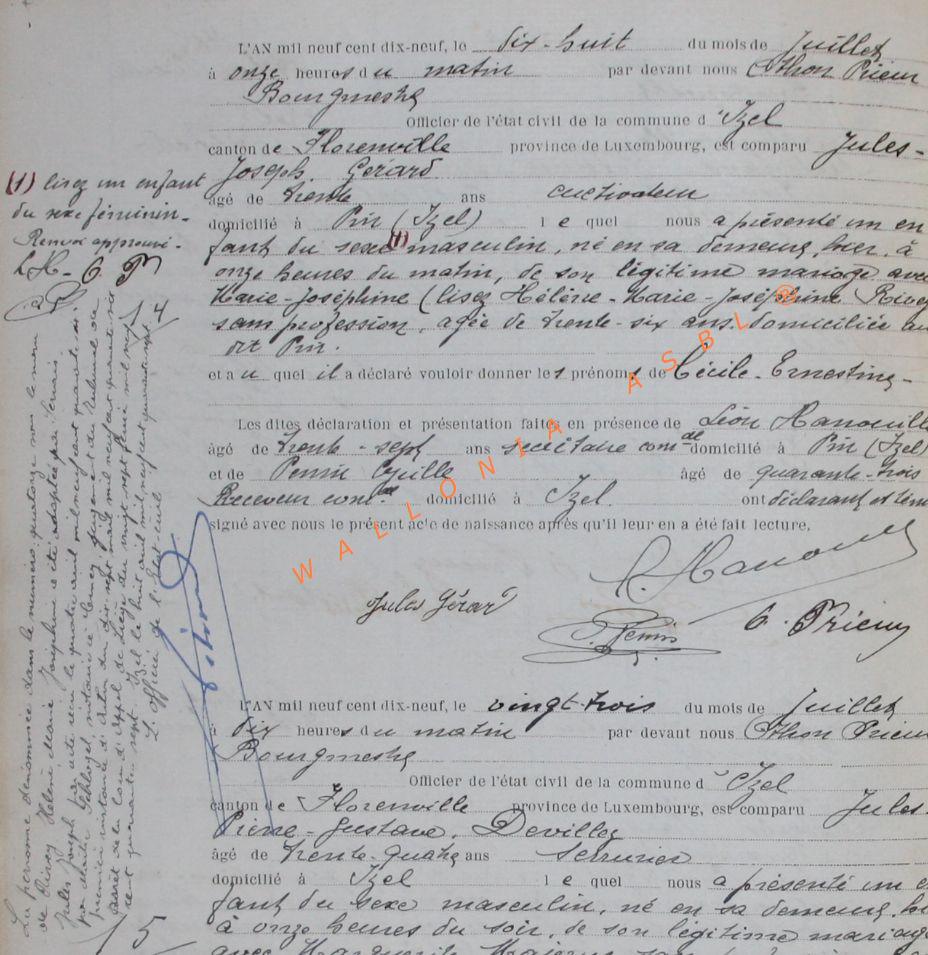 L'AN mil neuf cent dix-neuf, le dix-huit du mois de Juillet
à onze heures du matin par devant nous Othon Prieur
Bourgmestre
Officier de l'état civil de la commune d'Izel
canton de Florenville province de Luxembourg, est comparu Jules-
Joseph Gerard
âgé de trente ans cultivateur
domicilié à Pin (Izel) lequel nous a présenté un en
fant du sexe (1) masculin, né en sa demeure, hier, à
onze heures du matin, de son légitime mariage avec
Marie-Joséphine (lisez Hélène-Marie-Joséphine
sans profession, agée de trente-six ans domiciliée au
dit Pin.
et auquel il a déclaré vouloir donner les prénoms de Cécile-Ernestine-
Les dites déclaration et présentation faites en présence de Léon Hanouille
âgé de trente-sept ans secrétaire comal domicilié à Pin (Izel)
et de Pernin Cyrille âgé de quarante-trois
Receveur comal domicilié à Izel ont déclarant et tém
signé avec nous le présent acte de naissance après qu'il leur en a été fait lecture.
Jules Gérard
L. Hanouille
C. Pernin
O. Prieur
(1) lisez un enfant
du sexe féminin.-
Renvoi approuvé.
L.H- O. P
4
La personne dénommée dans le numéro quatorze sous le nom
Hélène Marie Joséphine a été adoptée par
Jules Joseph, par acte reçu le quatre avril mil neuf cent quarante-six
par devant notaire à jugement du tribunal de
première instance d'Arlon du dix-sept mil neuf cent quarante-six
arrêt de la Cour d'Appel de Liège du vingt-sept mil neuf
cent quarante-sept. Izel le huit avril mil neuf cent quarante-sept
L'officier de l'état-civil
WALLONIA ASBL ©
L'AN mil neuf cent dix-neuf, le vingt-trois du mois de Juillet
à dix heures du matin par devant nous Othon Prieur
Bourgmestre
Officier de l'état civil de la commune d'Izel
canton de Florenville province de Luxembourg, est comparu Jules-
Pierre-Gustave. Devillez
âgé de trente-quatre ans serrurier
domicilié à Izel lequel nous a présenté un en
fant du sexe masculin, né en sa demeure, hi
à onze heures du soir, de son légitime mariage
avec Marguerite
5